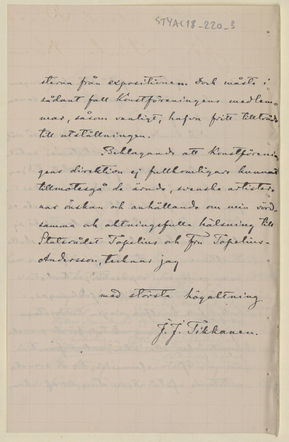 STYAC18_220_3
sterna från expositionen. Dock måste i
sådant fall Konstföreningens medlem-
mar, såsom vanligt, hafva fritt tillträde
till utställningen.
Beklagande att Konstförenin-
gens direktion ej fullkomligare kunnat
tillmötesgå de ärade, svenska artister-
nas önskan och anhållande om min vörd-
samma och aktningsfulla hälsning till
Statsrådet Topelius och Fru Topelius-
Andersson, tecknar jag
med största högaktning
J. J. Tikkanen.